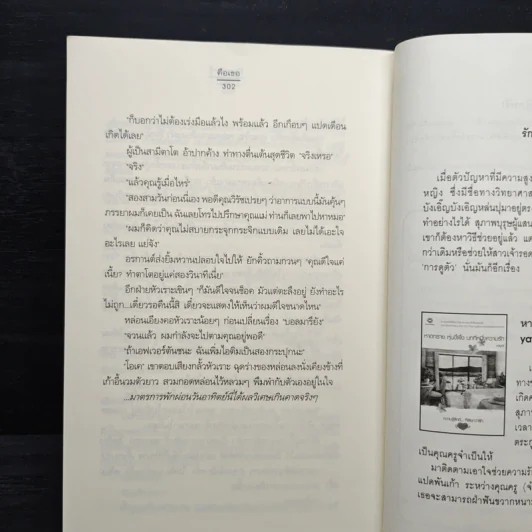 คือเธอ
302
"ก็บอกว่าไม่ต้องเร่งมือแล้วไง พร้อมแล้ว อีกเกือบๆ แปดเดือน
เกิดได้เลย"
ผู้เป็นสามีตาโต อ้าปากค้าง ท่าทางตื่นเต้นสุดชีวิต "จริงเหรอ"
"จริง"
"แล้วคุณรู้เมื่อไหร่"
"สองสามวันก่อนนี่เอง พอคุณวิรัชเปรยๆ ว่าอาการแบบนี้มันคุ้นๆ
ภรรยาผมก็เคยเป็น ฉันเลยโทรไปปรึกษาคุณแม่ ท่านก็เลยพาไปหาหมอ"
"ผมก็คิดว่าคุณไม่สบายกระจุกกระจิกแบบเดิม เลยไม่ได้เอะใจ
อะไรเลย แย่จัง"
อรกานต์ส่งยิ้มหวานปลอบใจไปให้ ยักคิ้วถามกวนๆ "คุณดีใจแค่
เนี้ย? ทำตาโตอยู่แค่สองวินาทีเนี่ย"
อีกฝ่ายหัวเราะเขินๆ "ก็มันดีใจจนช็อค มัวแต่ตะลึงอยู่ ยังทำอะไร
ไม่ถูก...เดี๋ยวรอคืนนี้สิ เดี๋ยวจะแสดงให้เห็นว่าผมดีใจขนาดไหน"
หล่อนเอียงคอหัวเราะน้อยๆ ก่อนเปลี่ยนเรื่อง "บอลมารึยัง"
"จวนแล้ว ผมกำลังจะไปตามคุณอยู่พอดี"
"ถ้าเอฟเวอร์ตันชนะ ฉันเพิ่มไอติมเป็นสองกระปุกนะ"
"โอเค" เขาตอบเสียงกลั้วหัวเราะ ฉุดร่างของหล่อนลงนั่งเคียงข้างที่
เก้าอี้นวมตัวยาว สวมกอดหล่อนไว้หลวมๆ พึมพำกับตัวเองอยู่ในใจ
...มาตรการพักผ่อนวันอาทิตย์นี่ได้ผลวิเศษเกินคาดจริงๆ
รัก
เมื่อตัวปัญหาที่มีความสูง
หญิง ซึ่งมีชื่อทางวิทยาศาส
บังเอิ๊ญบังเอิญหล่นปุมาอยู่ตร
ทำอย่างไรได้ สุภาพบุรุษผู้แสน
เขาก็ต้องหาวิธีช่วยอยู่แล้ว แต่
กว่าเดิมหรือช่วยให้สาวเจ้ารอด
'การดูตัว' นั่นมันก็อีกเรื่อง
หา
ya
ทาง
เกิด
สุภา
เวลา
ตระกู
เป็นคุณครูจำเป็นให้
มาติดตามเอาใจช่วยความรั
แปดพันเก้า ระหว่างคุณครู (จํ
เธอจะสามารถฝ่าฟันขวากหนา